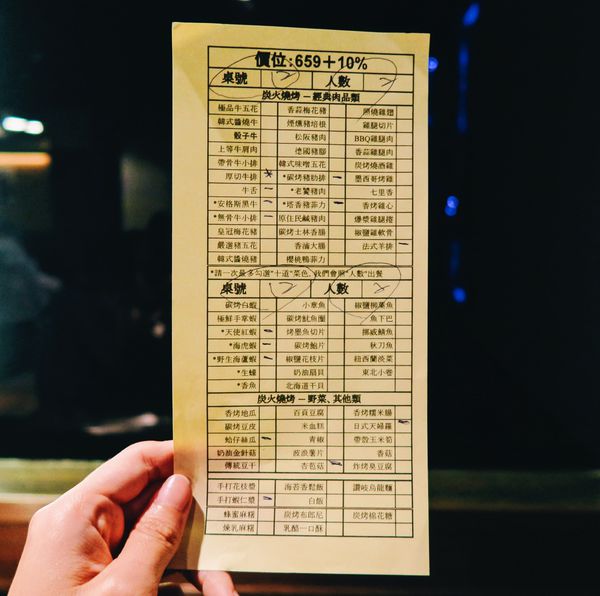 價位:659+10%
桌號 2 人數 2
炭火燒烤 – 經典肉品類
極品牛五花 香蒜梅花豬 照燒雞翅
韓式醬燒牛 煙燻豬培根 雞腿切片
骰子牛 松阪豬肉 BBQ雞腿肉
上等牛肩肉 德國豬腳 香蒜雞腿肉
帶骨牛小排 韓式味噌五花 炭烤燒酒雞
厚切牛排 *碳烤豬肋排 墨西哥烤雞
牛舌 *老饕豬肉 七里香
*安格斯黑牛 *塔香豬菲力 香烤雞心
*無骨牛小排 原住民鹹豬肉 爆漿雞腿捲
皇冠梅花豬 碳烤士林香腸 椒鹽雞軟骨
嚴選豬五花 香滷大腸 法式羊排
韓式醬燒豬 櫻桃鴨菲力
*請一次最多勾選"十道"菜色,我們會照"人數"出餐
桌號 2 人數 2
碳烤白蝦 小章魚 椒鹽柳葉魚
極鮮手掌蝦 碳烤魷魚圈 魚下巴
*天使紅蝦 烤墨魚切片 挪威鯖魚
*海虎蝦 碳烤鮑片 秋刀魚
*野生海蘆蝦 椒鹽花枝片 紐西蘭淡菜
*生蠔 奶油扇貝 東北小卷
*香魚 北海道干貝
炭火燒烤 – 野菜、其他類
香烤地瓜 百頁豆腐 香烤糯米腸
碳烤豆皮 米血糕 日式天婦羅
蛤仔絲瓜 青椒 帶殼玉米筍
奶油金針菇 波浪薯片 香菇
傳統豆干 杏苞菇 炸烤臭豆腐
手打花枝漿 海苔香鬆飯 讚岐烏龍麵
手打蝦仁漿 白飯
蜂蜜麻糬 炭烤布郎尼 炭烤棉花糖
煉乳麻糬 乳酪一口酥